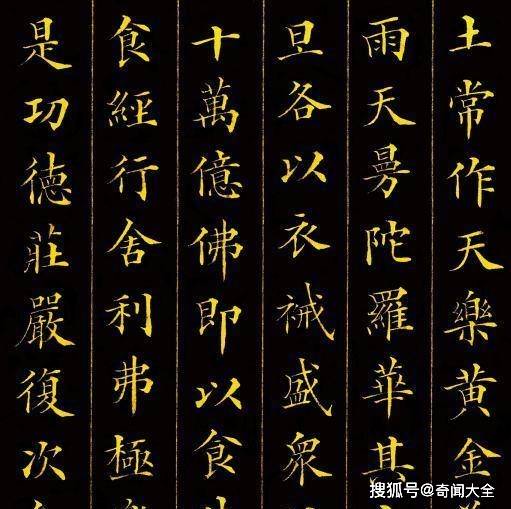 土常作天樂黄金
雨天曼陀羅華其
旦各以衣裓盛衆
十萬億佛即以食
食經行舍利弗極
是功德莊嚴復次
搜狐号@奇闻大全